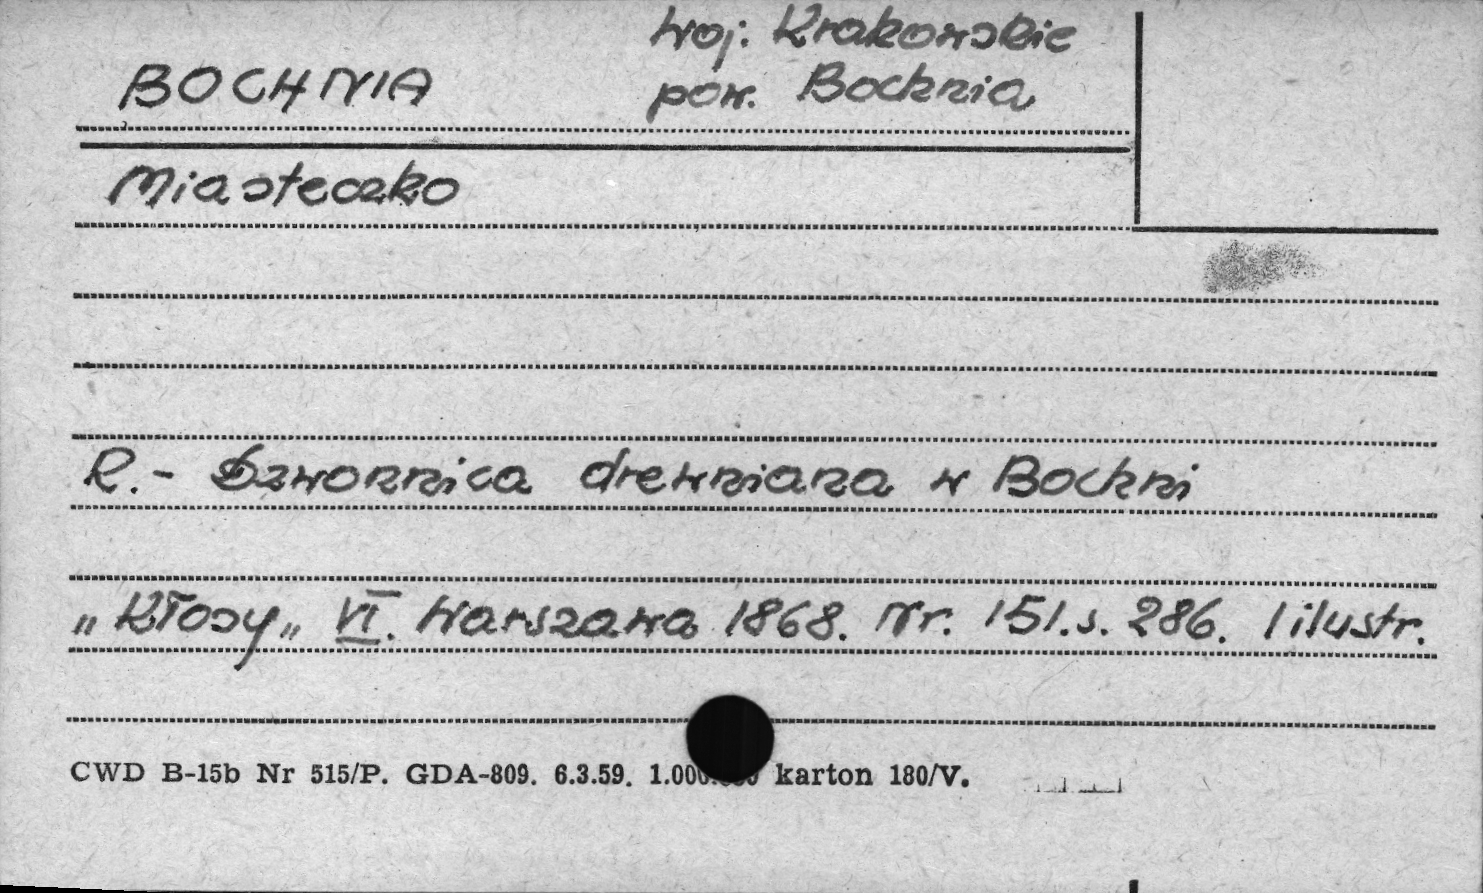 woj. Krakowskie
BOCHNIA pow. Bochnia
Miasteczko
R.- Dzwonnica drewniana w Bochni
„Kłosy„ VI. Warszawa 1868. Nr. 151. s. 286. 1 ilustr.
CWD B-15b Nr 515/P. GDA-809. 6.3.59. karton 180/V.